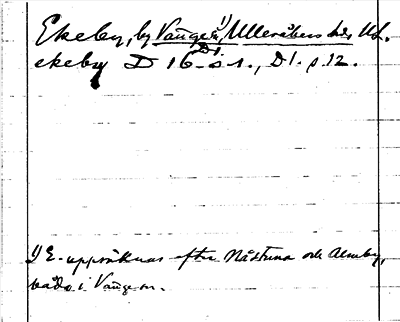 Ekeby, by Vänge sn, 1) Ulleråkers hd, Ul.
ekeby D 16 s 1., D1. s. 12.
1) E. uppräknas efter Nåstuna och Almby,
båda i Vänge sn.